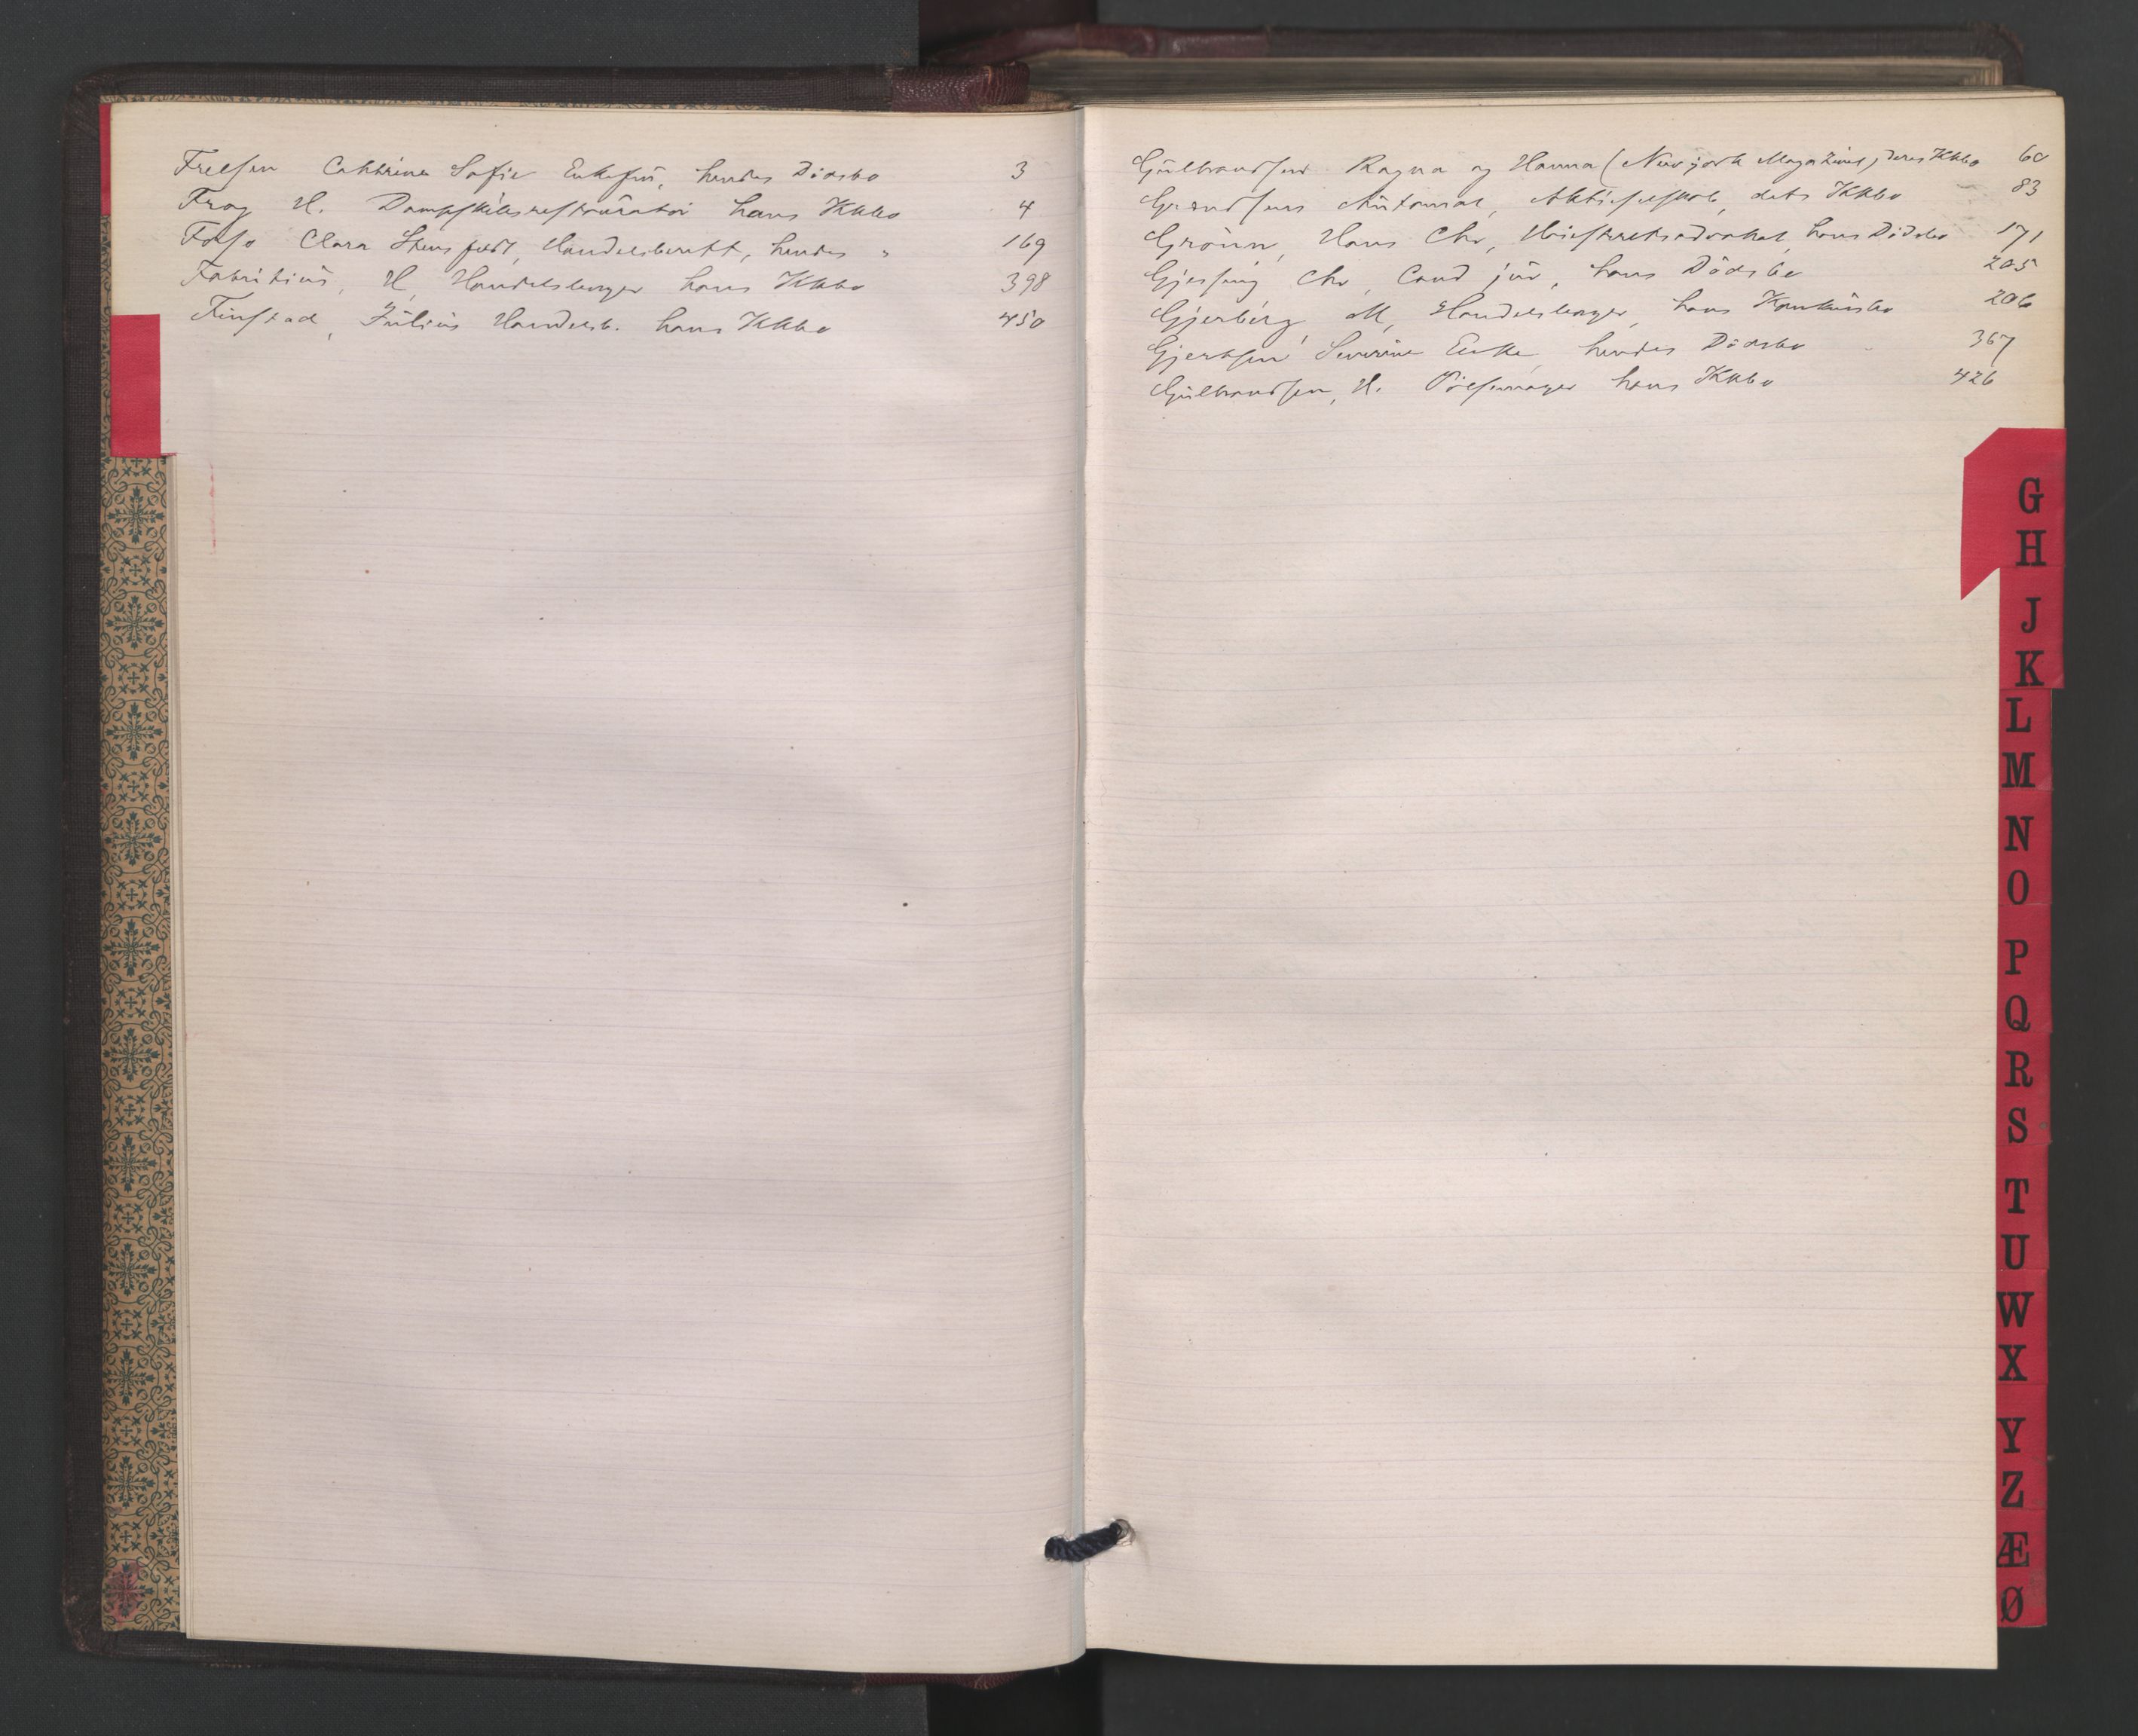 Freelsen Cathrine Sofie Enkefru, hendes Dödsbo 3
Frog H. Dampskibsrestauratør hans Kkbo 4
Foss Clara Stensfeldt, Handelsberett, hendes " 169
Fabritius, H, Handelsborger hans Kkbo 398
Finstad, Julius Handelsb. hans Kkbo 450
Gulbrandsen Ragna og Hanna (New york Magazinet) deres Kkbo 60
Grandsens Automat, Aktieselskab, dets Kkbo 83
Grönn, Hans Chr, Höiesteretsadvokat, hans Dödsbo 171
Gjessing Chr, Cand jur, hans Dödsbo 205
Gjerberg M, Handelsborger, hans Konkursbo 206
Gjertsen Severine Enke, hendes Dödsbo 367
Gulbrandsen, H. Pölsemager hans Kkbo 426
G
H
J
K
L
M
N
O
P
Q
R
S
T
U
W
X
Y
Z
Æ
Ø